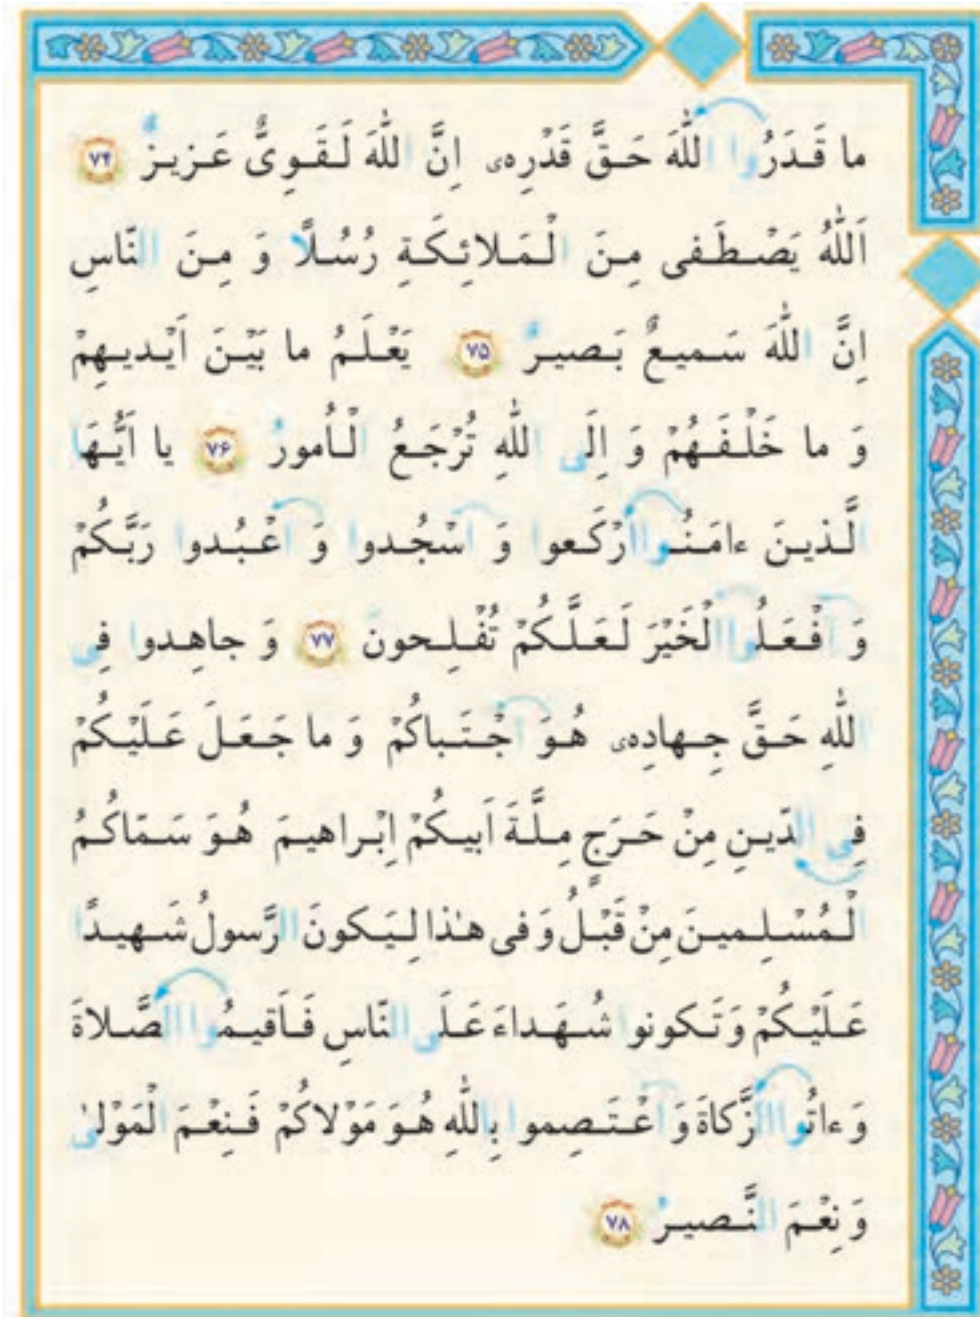 ما قَـدَرُوا اللّٰهَ حَـقَّ قَدْرِهی اِنَّ اللّٰهَ لَـقَـوِیٌّ عَـزیزٌ ﴿۷۴﴾
اَللّٰهُ یَصْـطَـفی مِـنَ الْـمَـلائِـکَـةِ رُسُـلًا وَ مِـنَ النّاسِ
اِنَّ اللّٰهَ سَـمیعٌ بَـصیـرٌ ﴿۷۵﴾ یَعْـلَـمُ ما بَیْـنَ اَیْـدیـهِمْ
وَ ما خَلْـفَـهُمْ وَ اِلَی اللّٰهِ تُرْجَـعُ الْـاُمورُ ﴿۷۶﴾ یا اَیُّـهَا
الَّـذیـنَ ءامَـنُـوا ارْکَـعوا وَ اسْجُـدوا وَ اعْـبُـدوا رَبَّـکُمْ
وَ افْـعَـلُـوا الْخَیْرَ لَـعَـلَّـکُمْ تُفْـلِـحونَ ﴿۷۷﴾ وَ جاهِـدوا فِی
اللّٰهِ حَـقَّ جِـهادِهی هُـوَ اجْـتَـباکُمْ وَ ما جَـعَـلَ عَـلَیْـکُمْ
فِی الدّیـنِ مِنْ حَـرَجٍ مِـلَّـةَ اَبیـکُمْ اِبْـراهیـمَ هُـوَ سَـمّاکُـمُ
الْـمُسْـلِـمیـنَ مِنْ قَبْـلُ وَ فی هـٰذا لِـیَـکونَ الرَّسولُ شَـهیـدًا
عَـلَیْـکُمْ وَ تَـکونوا شُـهَـداءَ عَـلَی النّاسِ فَـاَقیـمُـوا الصَّـلاةَ
وَ ءاتُوا الزَّکاةَ وَ اعْـتَـصِموا بِاللّٰهِ هُـوَ مَوْلاکُمْ فَـنِعْـمَ الْمَوْلیٰ
وَ نِعْـمَ النَّـصیـرُ ﴿۷۸﴾